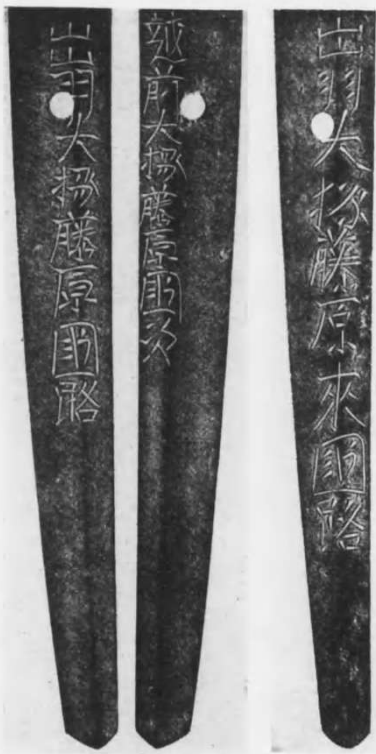 出羽大掾藤原來國路
越前大掾藤原國次
出羽大掾藤原國路